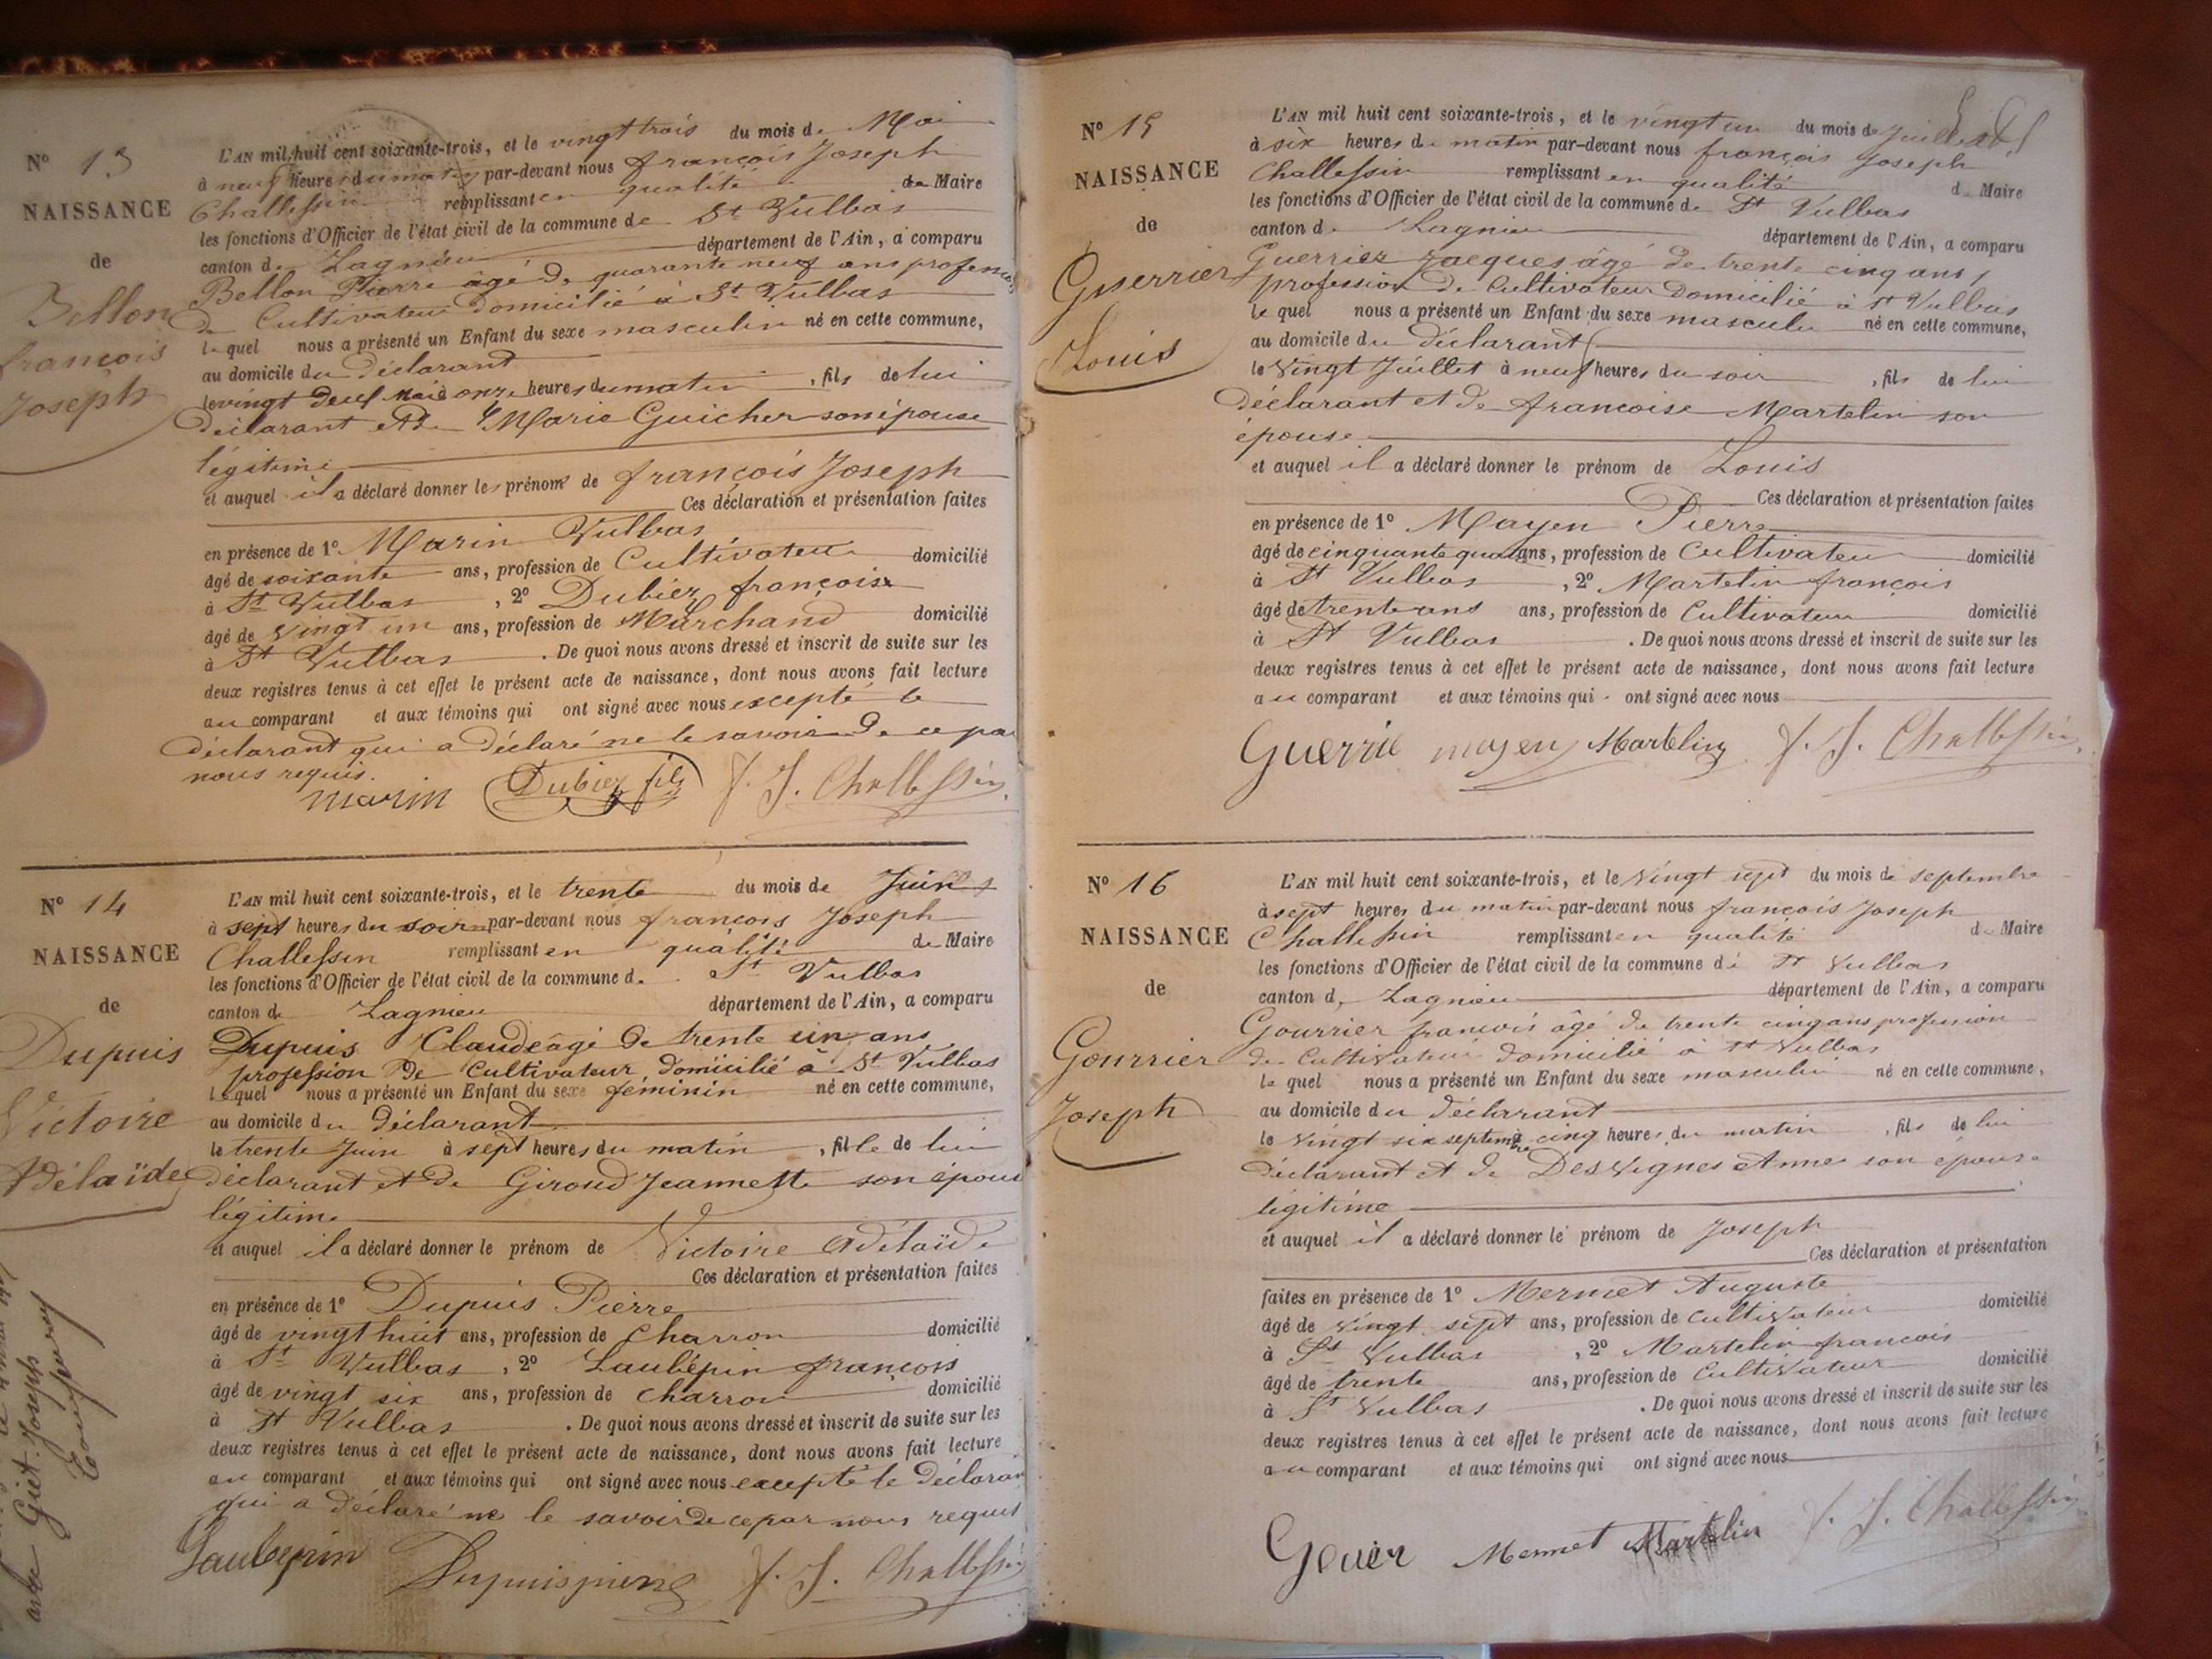 N° 13
NAISSANCE
de
Bellon
françois
Joseph
L'AN mil huit cent soixante-trois, et le vingt trois du mois de Mai
à neuf heures du matin par-devant nous françois Joseph
Challessin remplissant en qualité de Maire
les fonctions d'Officier de l'état civil de la commune de St Vulbas
canton de Lagnieu département de l'Ain, a comparu
Bellon Pierre âgé de quarante neuf ans profession
de Cultivateur domicilié à St Vulbas
lequel nous a présenté un Enfant du sexe masculin né en cette commune,
au domicile du déclarant
le vingt deux Mai à onze heures du matin, fils de lui
déclarant et de Marie Guicher son épouse
légitime
et auquel il a déclaré donner les prénoms de françois Joseph
Ces déclaration et présentation faites
en présence de 1° Marin Vulbas
âgé de soixante ans, profession de Cultivateur domicilié
à St Vulbas, 2° Dubiez françois
âgé de vingt un ans, profession de Marchand domicilié
à St Vulbas. De quoi nous avons dressé et inscrit de suite sur les
deux registres tenus à cet effet le présent acte de naissance, dont nous avons fait lecture
au comparant et aux témoins qui ont signé avec nous excepté le
déclarant qui a déclaré ne le savoir de ce par
nous requis.
marin Dubiez fils f. J. Challessin
N° 14
NAISSANCE
de
Dupuis
Victoire
Adélaïde
L'AN mil huit cent soixante-trois, et le trente du mois de Juin
à sept heures du soir par-devant nous françois Joseph
Challessin remplissant en qualité de Maire
les fonctions d'Officier de l'état civil de la commune d. St Vulbas
canton de Lagnieu département de l'Ain, a comparu
Dupuis Claude âgé de trente un ans
profession de Cultivateur domicilié à St Vulbas
lequel nous a présenté un Enfant du sexe féminin né en cette commune,
au domicile du déclarant
le trente Juin à sept heures du matin, fille de lui
déclarant et de Giroud Jeannette son épouse
légitime
et auquel il a déclaré donner le prénom de Victoire Adélaïde
Ces déclaration et présentation faites
en présence de 1° Dupuis Pierre
âgé de vingt huit ans, profession de Charron domicilié
à St Vulbas, 2° Laubépin françois
âgé de vingt six ans, profession de charron domicilié
à St Vulbas. De quoi nous avons dressé et inscrit de suite sur les
deux registres tenus à cet effet le présent acte de naissance, dont nous avons fait lecture
au comparant et aux témoins qui ont signé avec nous excepté le déclarant
qui a déclaré ne le savoir de ce par nous requis
Laubepin Dupuis pierre f. J. Challessin
avec Giet Joseph
N° 15
NAISSANCE
de
Guerrier
Louis
L'AN mil huit cent soixante-trois, et le vingt un du mois de Juillet
à six heures de matin par-devant nous françois Joseph
Challessin remplissant en qualité d. Maire
les fonctions d'Officier de l'état civil de la commune de St Vulbas
canton de Lagnieu département de l'Ain, a comparu
Guerrier Jacques âgé de trente cinq ans,
profession de Cultivateur domicilié à St Vulbas
le quel nous a présenté un Enfant du sexe masculin né en cette commune,
au domicile du déclarant
le Vingt Juillet à neuf heures du soir, fils de lui
déclarant et de françoise Martelin son
épouse
et auquel il a déclaré donner le prénom de Louis
Ces déclaration et présentation faites
en présence de 1° Mayen Pierre
âgé de cinquante quatre ans, profession de Cultivateur domicilié
à St Vulbas, 2° Martelin françois
âgé de trente ans ans, profession de Cultivateur domicilié
à St Vulbas. De quoi nous avons dressé et inscrit de suite sur les
deux registres tenus à cet effet le présent acte de naissance, dont nous avons fait lecture
au comparant et aux témoins qui ont signé avec nous
Guerrie moyen Martelin f. J. Challessin
N° 16
NAISSANCE
de
Gourrier
Joseph
L'AN mil huit cent soixante-trois, et le Vingt sept du mois de septembre
à sept heures du matin par-devant nous françois Joseph
Challessin remplissant en qualité d. Maire
les fonctions d'Officier de l'état civil de la commune de St Vulbas
canton de Lagnieu département de l'Ain, a comparu
Gourrier francois âgé de trente cinq ans profession
de Cultivateur domicilié à St Vulbas
le quel nous a présenté un Enfant du sexe masculin né en cette commune,
au domicile du déclarant
le Vingt six septembre cinq heures du matin, fils de lui
déclarant et de Desvignes Anne son épouse
légitime
et auquel il a déclaré donner le prénom de Joseph
Ces déclaration et présentation
faites en présence de 1° Mermet Auguste
âgé de vingt sept ans, profession de cultivateur domicilié
à St Vulbas, 2° Martelin francois
âgé de trente ans, profession de Cultivateur domicilié
à St Vulbas. De quoi nous avons dressé et inscrit de suite sur les
deux registres tenus à cet effet le présent acte de naissance, dont nous avons fait lecture
au comparant et aux témoins qui ont signé avec nous
Gouier Mermet Martelin f. J. Challessin